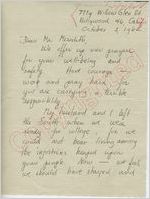 7719 Wilson Glen Dr.
Hollywood 46 Calif.
October 2, 1962
Dear Mr. Meredith,
We offer up our prayers
for your well-being and
safety. Have courage
work and pray hard for
you are carrying a terrible
responsibility.
My husband and I left
the South when we were
ready for college, for we
could not bear living among
the injustices heaped upon
your people. Now — we feel
we should have stayed and